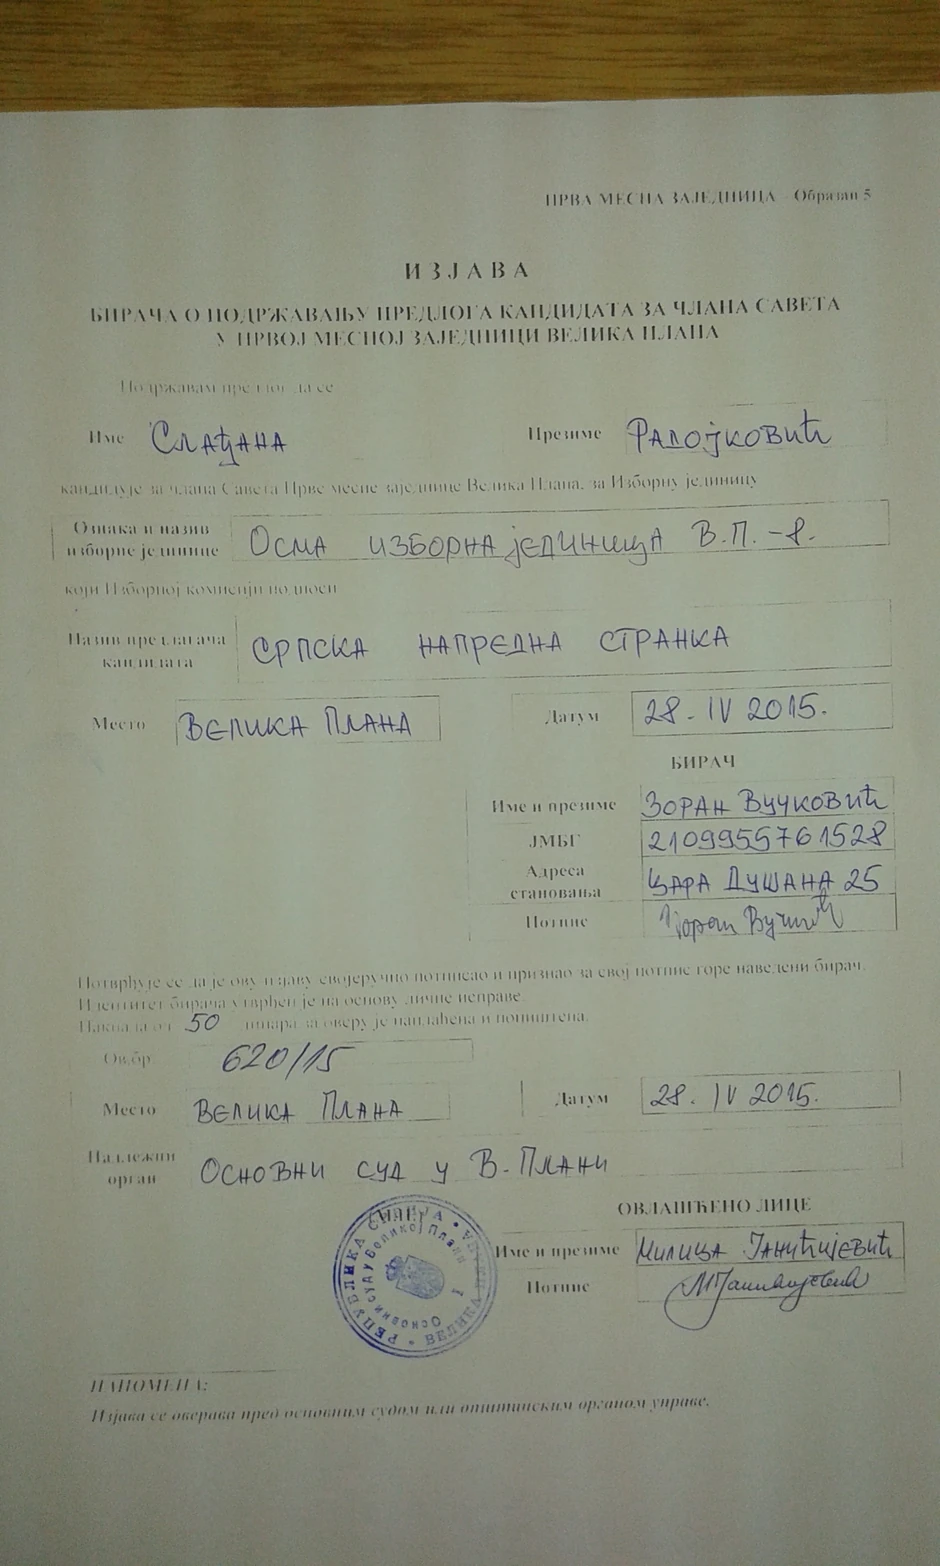 ПРВА МЕСНА ЗАЈЕДНИЦА - Образац 5
ИЗЈАВА
БИРАЧА О ПОДРЖАВАЊУ ПРЕДЛОГА КАНДИДАТА ЗА ЧЛАНА САВЕТА
У ПРВОЈ МЕСНОЈ ЗАЈЕДНИЦИ ВЕЛИКА ПЛАНА
Подржавам предлог да се
Име Слађана Презиме Радојковић
кандидује за члана Савета Прве месне заједнице Велика Плана, за Изборну јединицу
Ознака и назив
изборне јединице
ОСМА ИЗБОРНА ЈЕДИНИЦА В.П. - 8.
који Изборној комисији подноси
Назив предлагача
кандидата
СРПСКА НАПРЕДНА СТРАНКА
Место ВЕЛИКА ПЛАНА Датум 28. IV 2015.
БИРАЧ
Име и презиме ЗОРАН ВУЧКОВИЋ
ЈМБГ 2109955761528
Адреса
становања
ЦАРА ДУШАНА 25
Потпис
Потврђује се да је ову изјаву својеручно потписао и признао за свој потпис горе наведени бирач.
Идентитет бирача утврђен је на основу личне исправе.
Накнада од 50 динара за оверу је наплаћена и поништена.
Ов.бр. 620/15
Место ВЕЛИКА ПЛАНА Датум 28. IV 2015.
Надлежни
орган
ОСНОВНИ СУД У В. ПЛАНИ
РЕПУБЛИКА СРБИЈА
Основни суд у Великој Плани
ВЕЛИКА
I
ОВЛАШЋЕНО ЛИЦЕ
Име и презиме МИЛИЦА ЈАНИЋИЈЕВИЋ
Потпис
НАПОМЕНА:
Изјава се оверава пред основним судом или општинским органом управе.